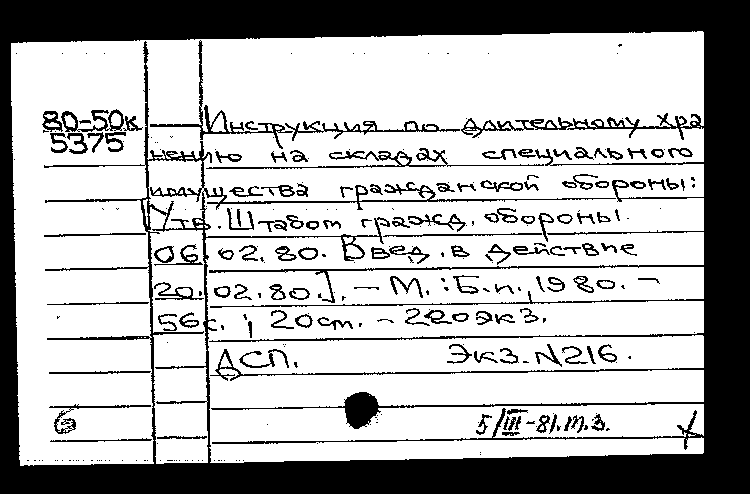 80-50к Инструкция по длительному хра
5375
нению на складах специального
имущества гражданской обороны:
[Утв. Штабом гражд. обороны.
06.02.80. Введ. в действие
20.02.80.]. – М. : Б.и., 1980. –
56с. ; 20см. – 220экз.
ДСП. Экз. N216.
б 5/III-81.т.з.